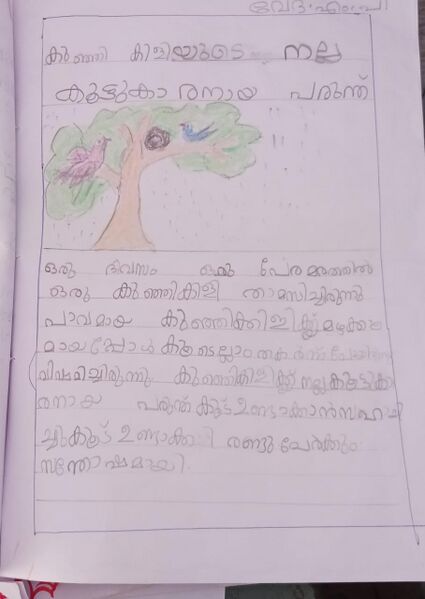 വേദ എം പി
കുഞ്ഞി കിളിയുടെ നല്ല
കൂട്ടുകാരനായ പരുന്ത്
ഒരു ദിവസം ഒരു പേരമരത്തിൽ
ഒരു കുഞ്ഞികിളി താമസിച്ചിരുന്നു
പാവമായ കുഞ്ഞിക്കിളിക്ക് മഴക്കാല
മായപ്പോൾ കൂടെല്ലാം തകർന്ന് പോയിരുന്നു
വിഷമിച്ചിരുന്നു കുഞ്ഞികിളിക്ക് നല്ല കൂട്ടുകാ
രനായ പരുന്ത് കൂട് ഉണ്ടാക്കാൻ സഹായി
ച്ചു കൂട് ഉണ്ടാക്കി രണ്ടു പേർക്കും
സന്തോഷമായി.